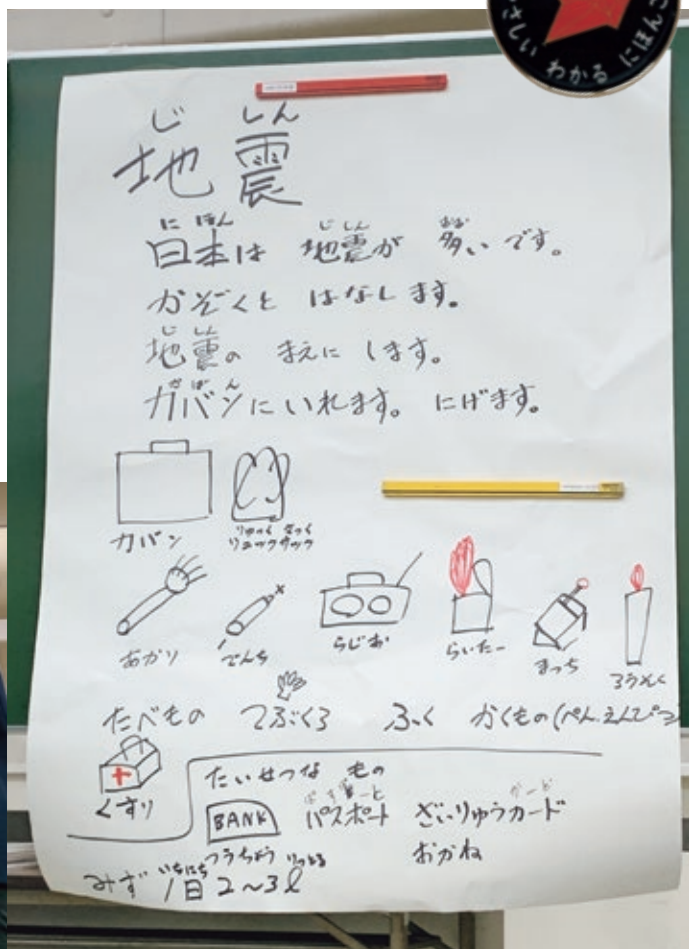 さしい わかる にほんご
じ しん
地 震
に ほん じ しん おお
日本は 地震が 多いです。
かぞくと はなします。
じ しん
地震の まえに します。
か ば ん
カバンにいれます。にげます。
カバン
りゅっく さっく
リュックサック
あかり でんち らじお らいたー まっち ろうそく
たべもの てぶくろ ふく かくもの(ぺん.えんぴつ
くすり
たいせつな もの
ぱすぽーと かーど
BANK パスポート ざいりゅうカード
つうちょう おかね
いちにち りっとる
みず 1日 2〜3ℓ